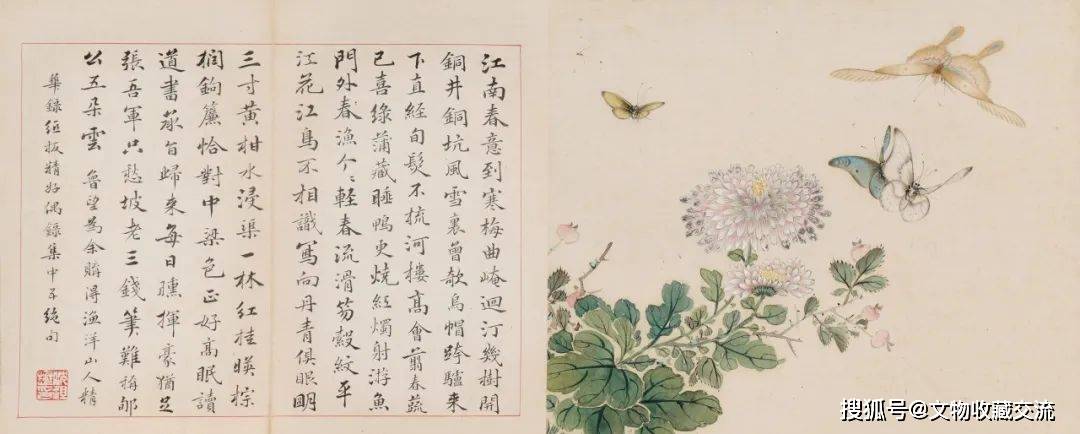 江南春意到寒梅曲崦迴汀幾樹開
銅井銅坑風雪裏曾欹烏帽跨驢來
下直經旬髮不梳河樓高會翦春蔬
已喜綠蒲藏睡鴨更燒紅燭射游魚
門外春漁个〻輕春流滑笏縠紋平
江花江鳥不相識寫向丹青俱眼明
三寸黃柑水浸渠一林紅桂暎棕
櫚鉤簾恰對中梁色正好高眠讀
道書 旨歸來每日曛揮豪猶足
張吾軍只愁坡老三錢筆難稱郇
公五朵雲 魯望為余購得漁洋山人精
華錄紙板精好偶錄集中五絕句
搜狐号@文物收藏交流